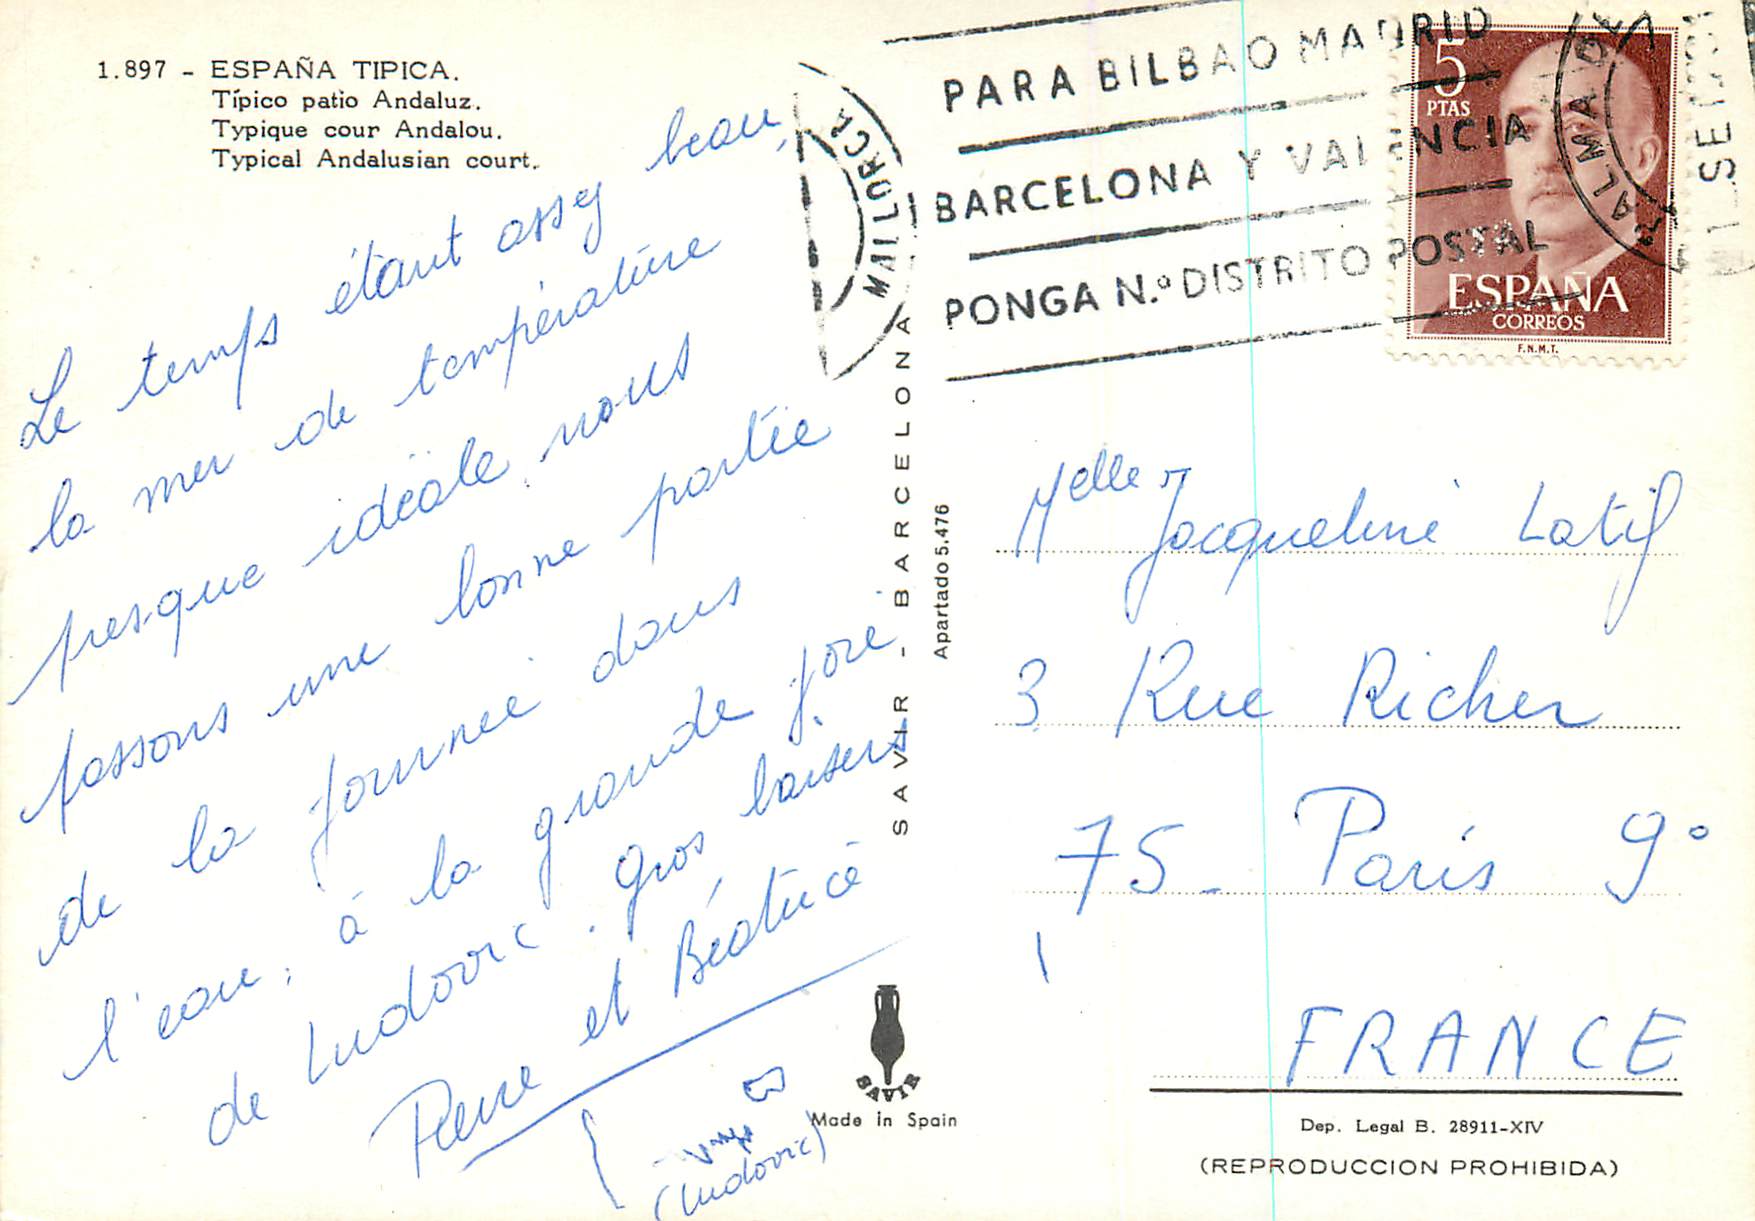 1.897 - ESPAÑA TIPICA.
Típico patio Andaluz.
Typique cour Andalou.
Typical Andalusian court.
Le temps étant assez beau,
la mer de température
presque idéale, nous
passons une bonne partie
de la journée dans
l'eau, à la grande joie
de Ludovic. Gros baisers
Pierre et Béatrice
(Ludovic)
SAVIR - BARCELONA
Apartado 5.476
SAVIR
Made in Spain
MALLORCA
PARA BILBAO MADRID
BARCELONA Y VALENCIA
PONGA N.º DISTRITO POSTAL
PALMA DE
SE
5
PTAS
ESPAÑA
CORREOS
F.N.M.T.
Melle Jacqueline Latif
3 Rue Richer
75 - Paris 9°
FRANCE
Dep. Legal B. 28911-XIV
(REPRODUCCION PROHIBIDA)